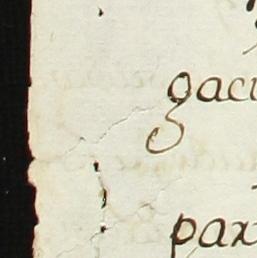 gaci
par